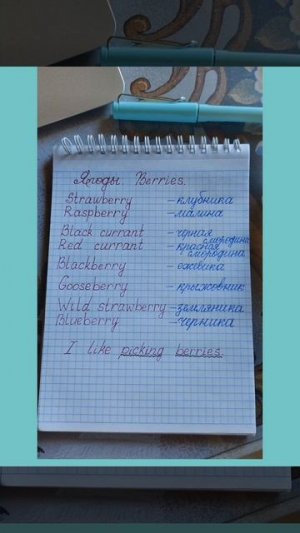 Ягоды. Berries.
Strawberry - клубника
Raspberry - малина
Black currant - чёрная смородина
Red currant - красная смородина
Blackberry - ежевика
Gooseberry - крыжовник
Wild strawberry - земляника
Blueberry - черника
I like picking berries.